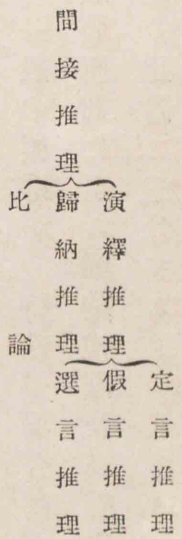 間接推理
演繹推理
歸納推理
比論
定言推理
假言推理
選言推理